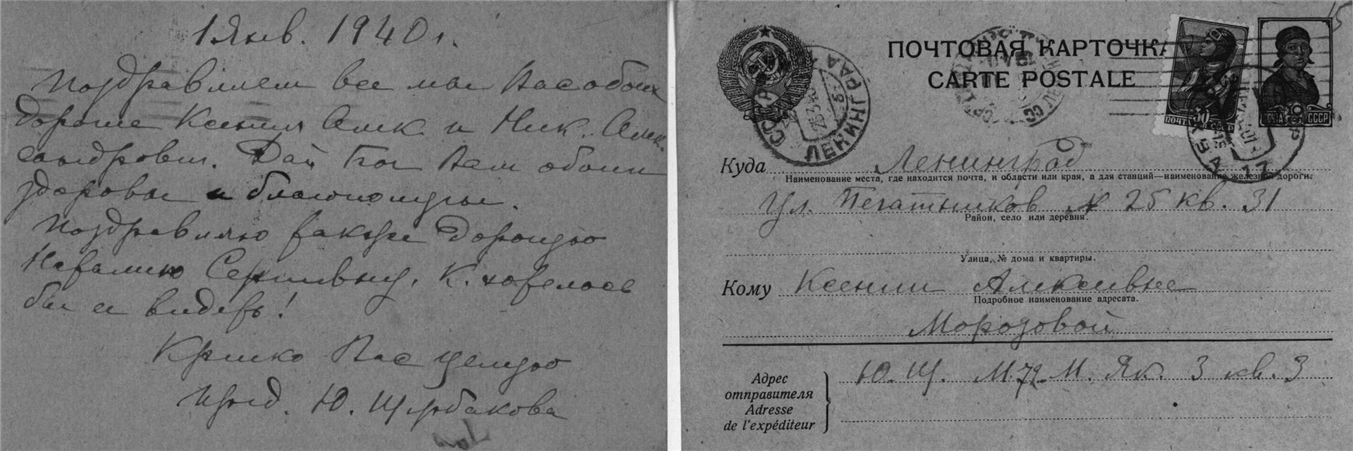 1 Янв. 1940 г.
Поздравляем все мы Вас обоих
дорогие Ксения Алек. и Ник. Алек
сандрович. Дай Бог Вам обоим
здоровья и благополучья.
Поздравляю также дорогую
Наталию Сергеевну. К. хотелось
бы ее видеть!
Крепко Вас целую
Ю. Щербакова
ПОЧТОВАЯ КАРТОЧКА
CARTE POSTALE
ПОЧТА СССР
ПОЧТА СССР
ЛЕНИНГРАД
Куда Ленинград
Наименование места, где находится почта, и области или края, а для станций—наименование железной дороги.
Ул. Печатников № 25 кв. 31
Район, село или деревня.
Улица, № дома и квартиры.
Кому Ксении Алексеевне
Подробное наименование адресата.
Мородовой
Адрес
отправителя
Adresse
de l'expéditeur
Ю. Щ. М. 72 М. Як. 3 кв. 3